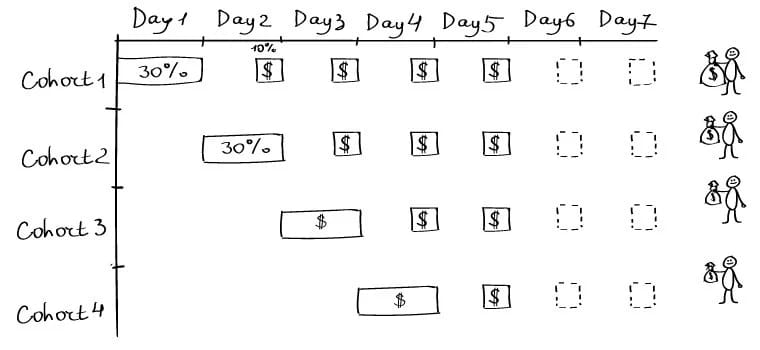 Day 1 Day2 Day3 Day4 Day5 Day6 Day7
10%
Cohort 1 30% $ $ $ $ $
Cohort2 30% $ $ $ $
Cohort 3 $ $ $ $
Cohort4 $ $ $